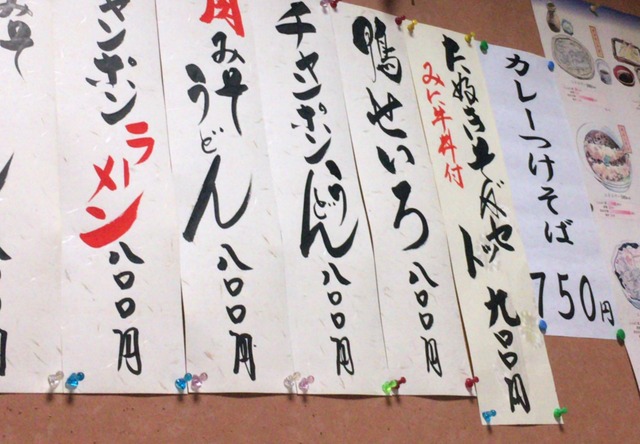 カレーつけそば
750円
たぬきそばセット 九〇〇円
みに牛丼付
鴨せいろ 八〇〇円
チャンポンうどん 八〇〇円
肉みそうどん 八〇〇円
チャンポンラーメン 八〇〇円
みそ